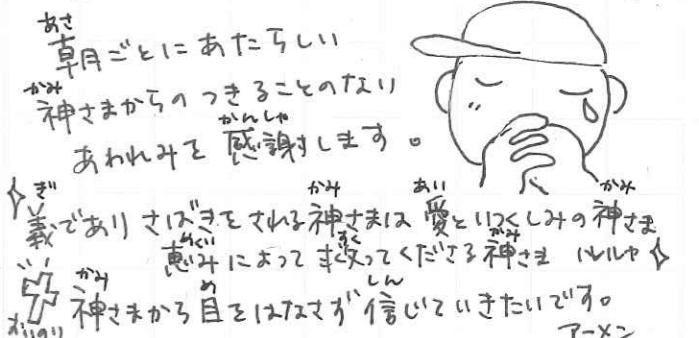 あさ
朝ごとにあたらしい
かみ
神さまからのつきることのない
かんしゃ
あわれみを感謝します。
ぎ かみ あい かみ
義でありさばきをされる神さまは愛といつくしみの神さま
めぐ すく かみ
恵みによって救ってくださる神さま ハレルヤ
かみ め しん
神さまから目をはなさず信じていきたいです。
おいのり
アーメン